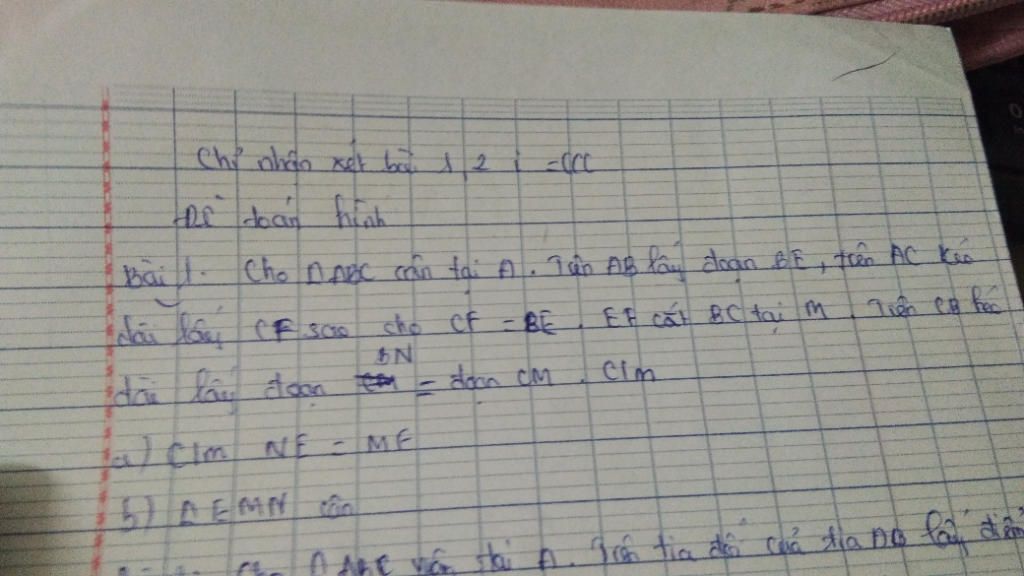 Chỉ nhận xét bài 1, 2 i =(((
Đề toán hình
Bài 1. Cho Δ ABC cân tại A. Trên AB lấy đoạn BE, trên AC kéo
dài lấy CF sao cho CF = BE. EF cắt BC tại M. Trên CB kéo
dài lấy đoạn BN = đoạn CM. C/m
a) C/m NE = MF
b) Δ EMN cân
Δ ABC tại A. Trên tia đối của tia AB lấy điểm